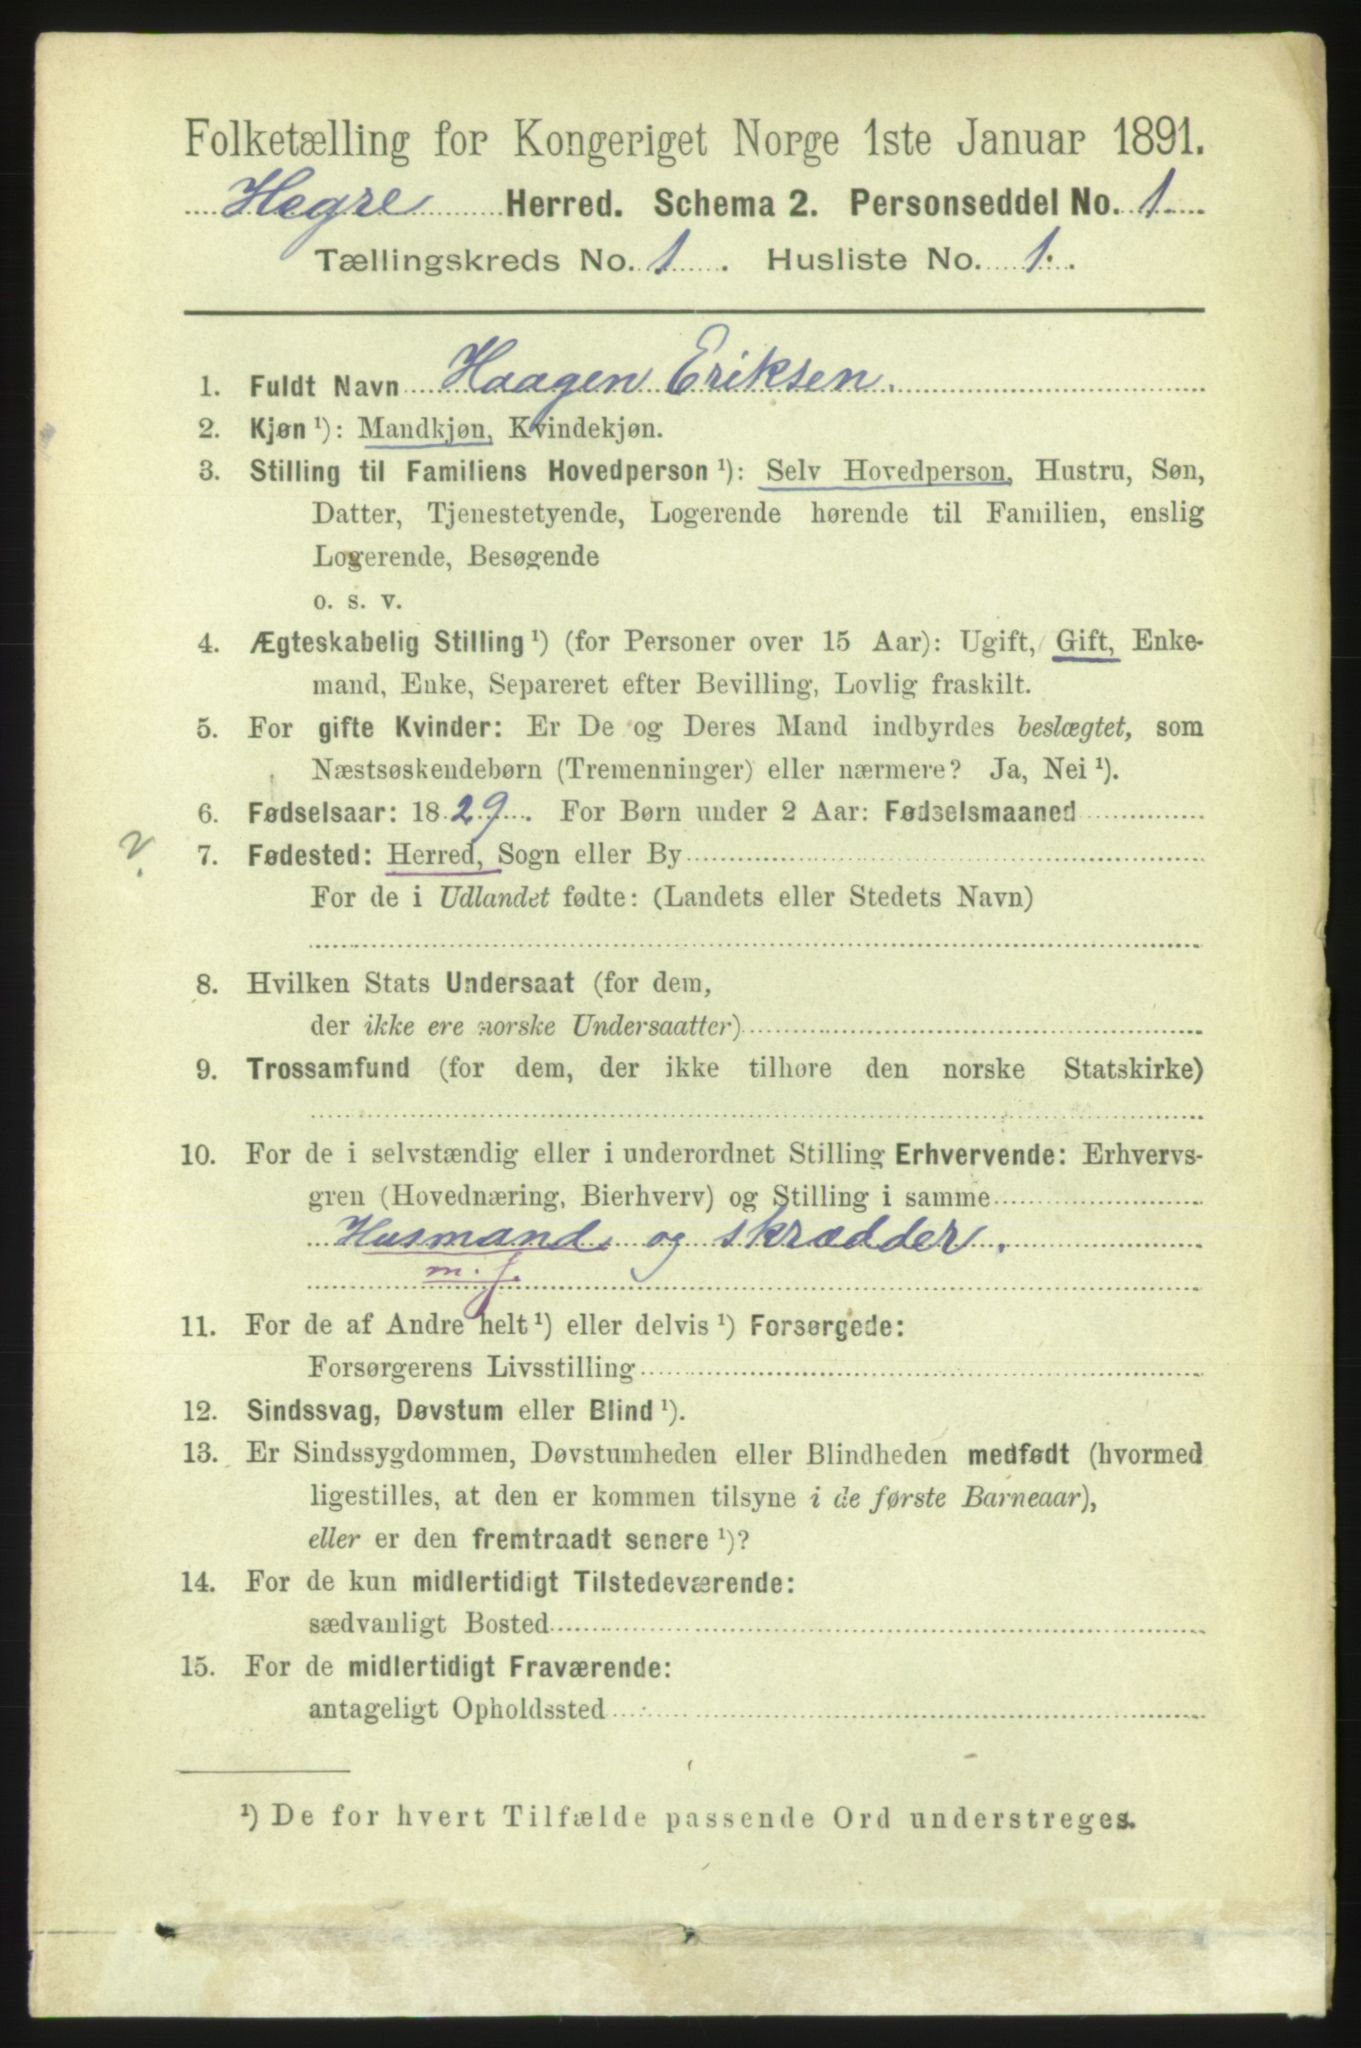 Folketælling for Kongeriget Norge 1ste Januar 1891.
Hegre Herred. Schema 2. Personseddel No. 1
Tællingskreds No. 1. Husliste No. 1.
1. Fuldt Navn Haagen Eriksen.
2. Kjøn ¹): Mandkjøn, Kvindekjøn.
3. Stilling til Familiens Hovedperson ¹): Selv Hovedperson, Hustru, Søn,
Datter, Tjenestetyende, Logerende hørende til Familien, enslig
Logerende, Besøgende
o. s. v.
4. Ægteskabelig Stilling ¹) (for Personer over 15 Aar): Ugift, Gift, Enke-
mand, Enke, Separeret efter Bevilling, Lovlig fraskilt.
5. For gifte Kvinder: Er De og Deres Mand indbyrdes beslægtet, som
Næstsøskendebørn (Tremenninger) eller nærmere? Ja, Nei ¹).
6. Fødselsaar: 1829. For Børn under 2 Aar: Fødselsmaaned
? 7. Fødested: Herred, Sogn eller By
For de i Udlandet fødte: (Landets eller Stedets Navn)
8. Hvilken Stats Undersaat (for dem,
der ikke ere norske Undersaatter)
9. Trossamfund (for dem, der ikke tilhøre den norske Statskirke)
10. For de i selvstændig eller i underordnet Stilling Erhvervende: Erhvervs-
gren (Hovednæring, Bierhverv) og Stilling i samme
Husmand og skrædder.
m. j.
11. For de af Andre helt ¹) eller delvis ¹) Forsørgede:
Forsørgerens Livsstilling
12. Sindssvag, Døvstum eller Blind ¹).
13. Er Sindssygdommen, Døvstumheden eller Blindheden medfødt (hvormed
ligestilles, at den er kommen tilsyne i de første Barneaar),
eller er den fremtraadt senere ¹)?
14. For de kun midlertidigt Tilstedeværende:
sædvanligt Bosted
15. For de midlertidigt Fraværende:
antageligt Opholdssted
¹) De for hvert Tilfælde passende Ord understreges.